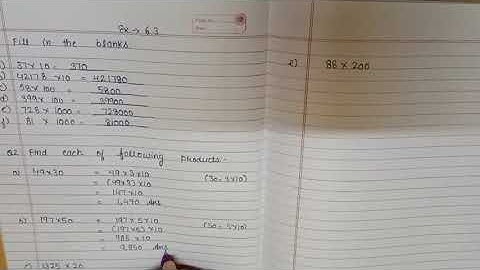 Ex → 6.3
Fill in the blanks
a) 37 x 10 = 370
b) 42178 x 10 = 421780
c) 58 x 100 = 5800
d) 399 x 100 = 39900
e) 728 x 1000 = 728000
f) 81 x 1000 = 81000
Q2 Find each of following products:-
a) 49 x 30 = 49 x 3 x 10 (30 = 3 x 10)
= (49 x 3) x 10
= 147 x 10
= 1,470 Ans
b) 197 x 50 = 197 x 5 x 10 (50 = 5 x 10)
= (197 x 5) x 10
= 985 x 10
= 9,850 Ans
x 20
e) 88 x 200